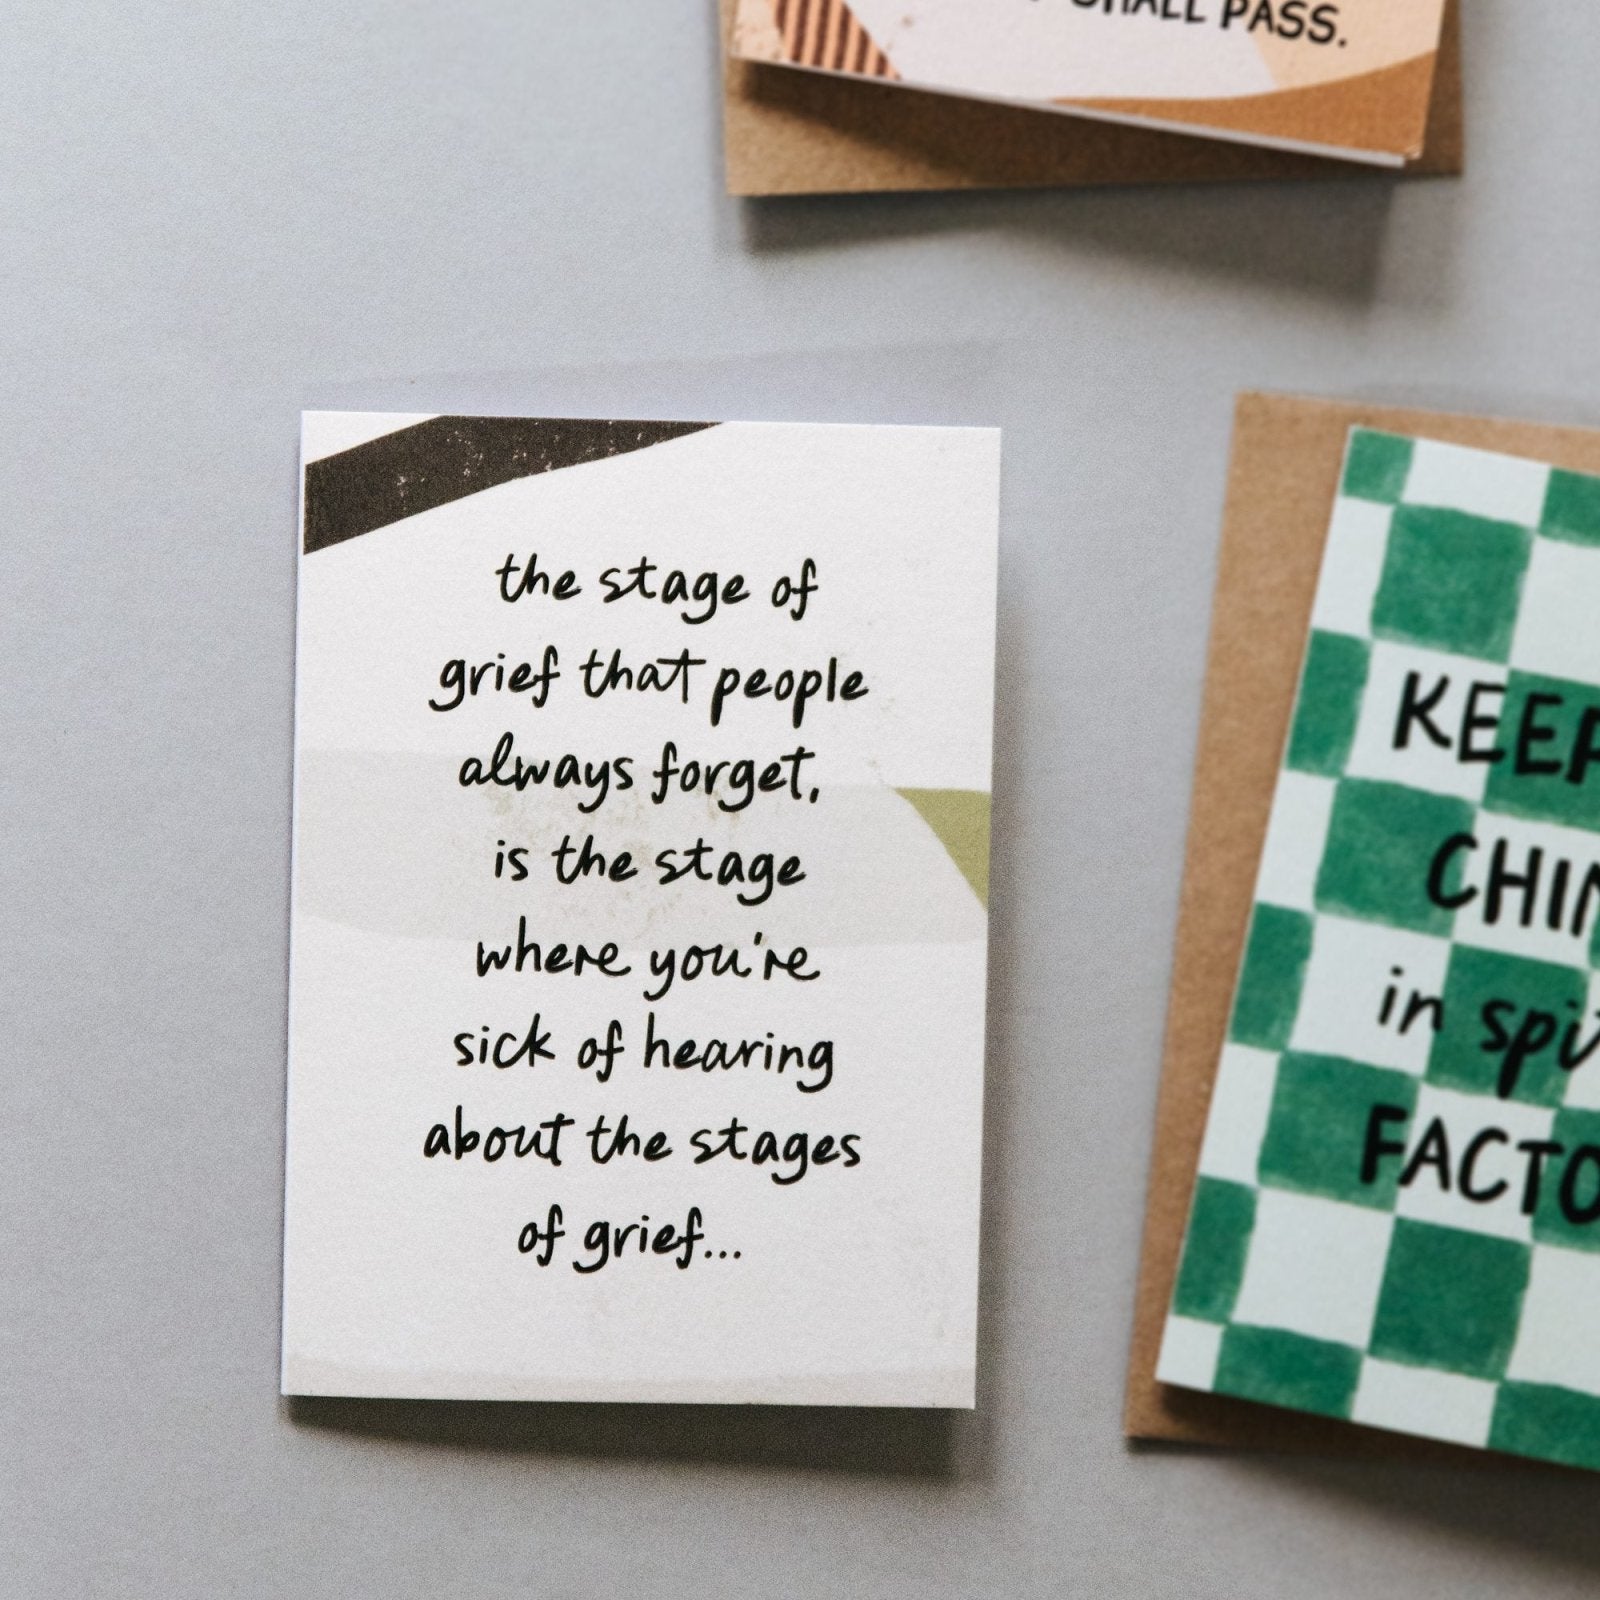 SHALL PASS.
the stage of
grief that people
always forget,
is the stage
where you're
sick of hearing
about the stages
of grief...
KEEP
in